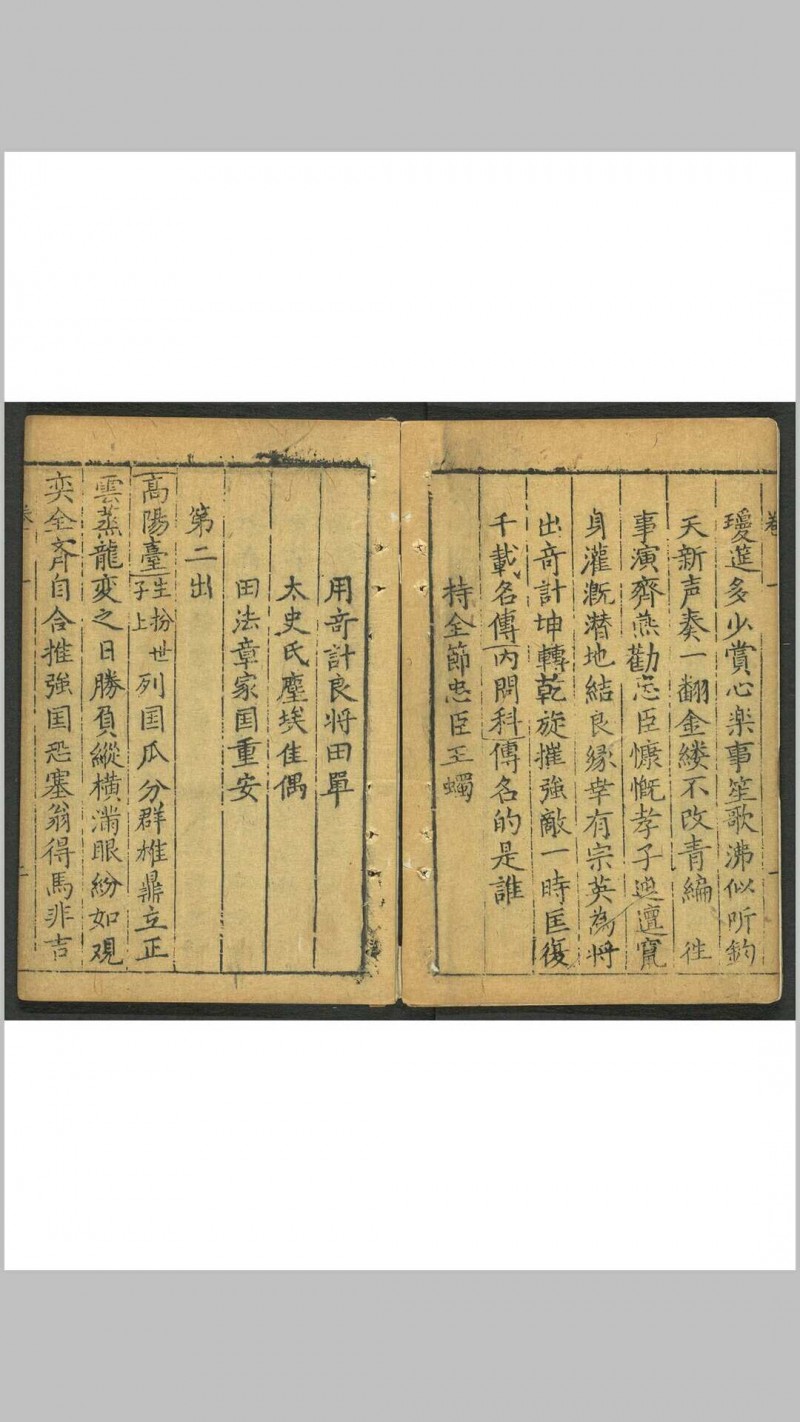 卷一
瓊筵多少賞心楽事笙歌沸似听鈞
天新声奏一翻金縷不改青編徃
事演齊燕勸忠臣慷慨孝子迍邅竄
身灌溉潜地結良縁幸有宗英為将
出竒計坤轉乾旋摧強敵一時匡復
千載名傳内問科傳名的是誰
持全節忠臣王蠋
用竒計良将田單
太史氏塵埃佳偶
田法章家国重安
第二出
高陽臺生扮世子上列国瓜分群雄鼎立正
雲蒸龍変之日勝負縱横満眼紛如覌
奕全斉自合推強国恐塞翁得馬非吉
卷一